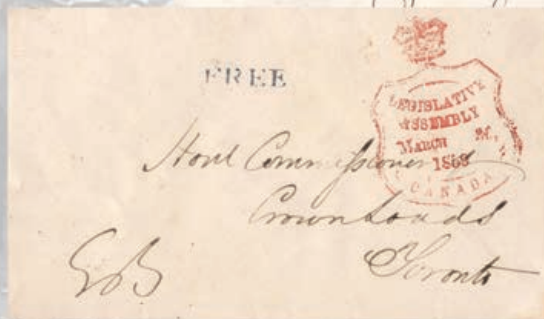 FREE
LEGISLATIVE
ASSEMBLY
MARCH
CANADA
Honl Commissioner of
Crown Lands
Toronto